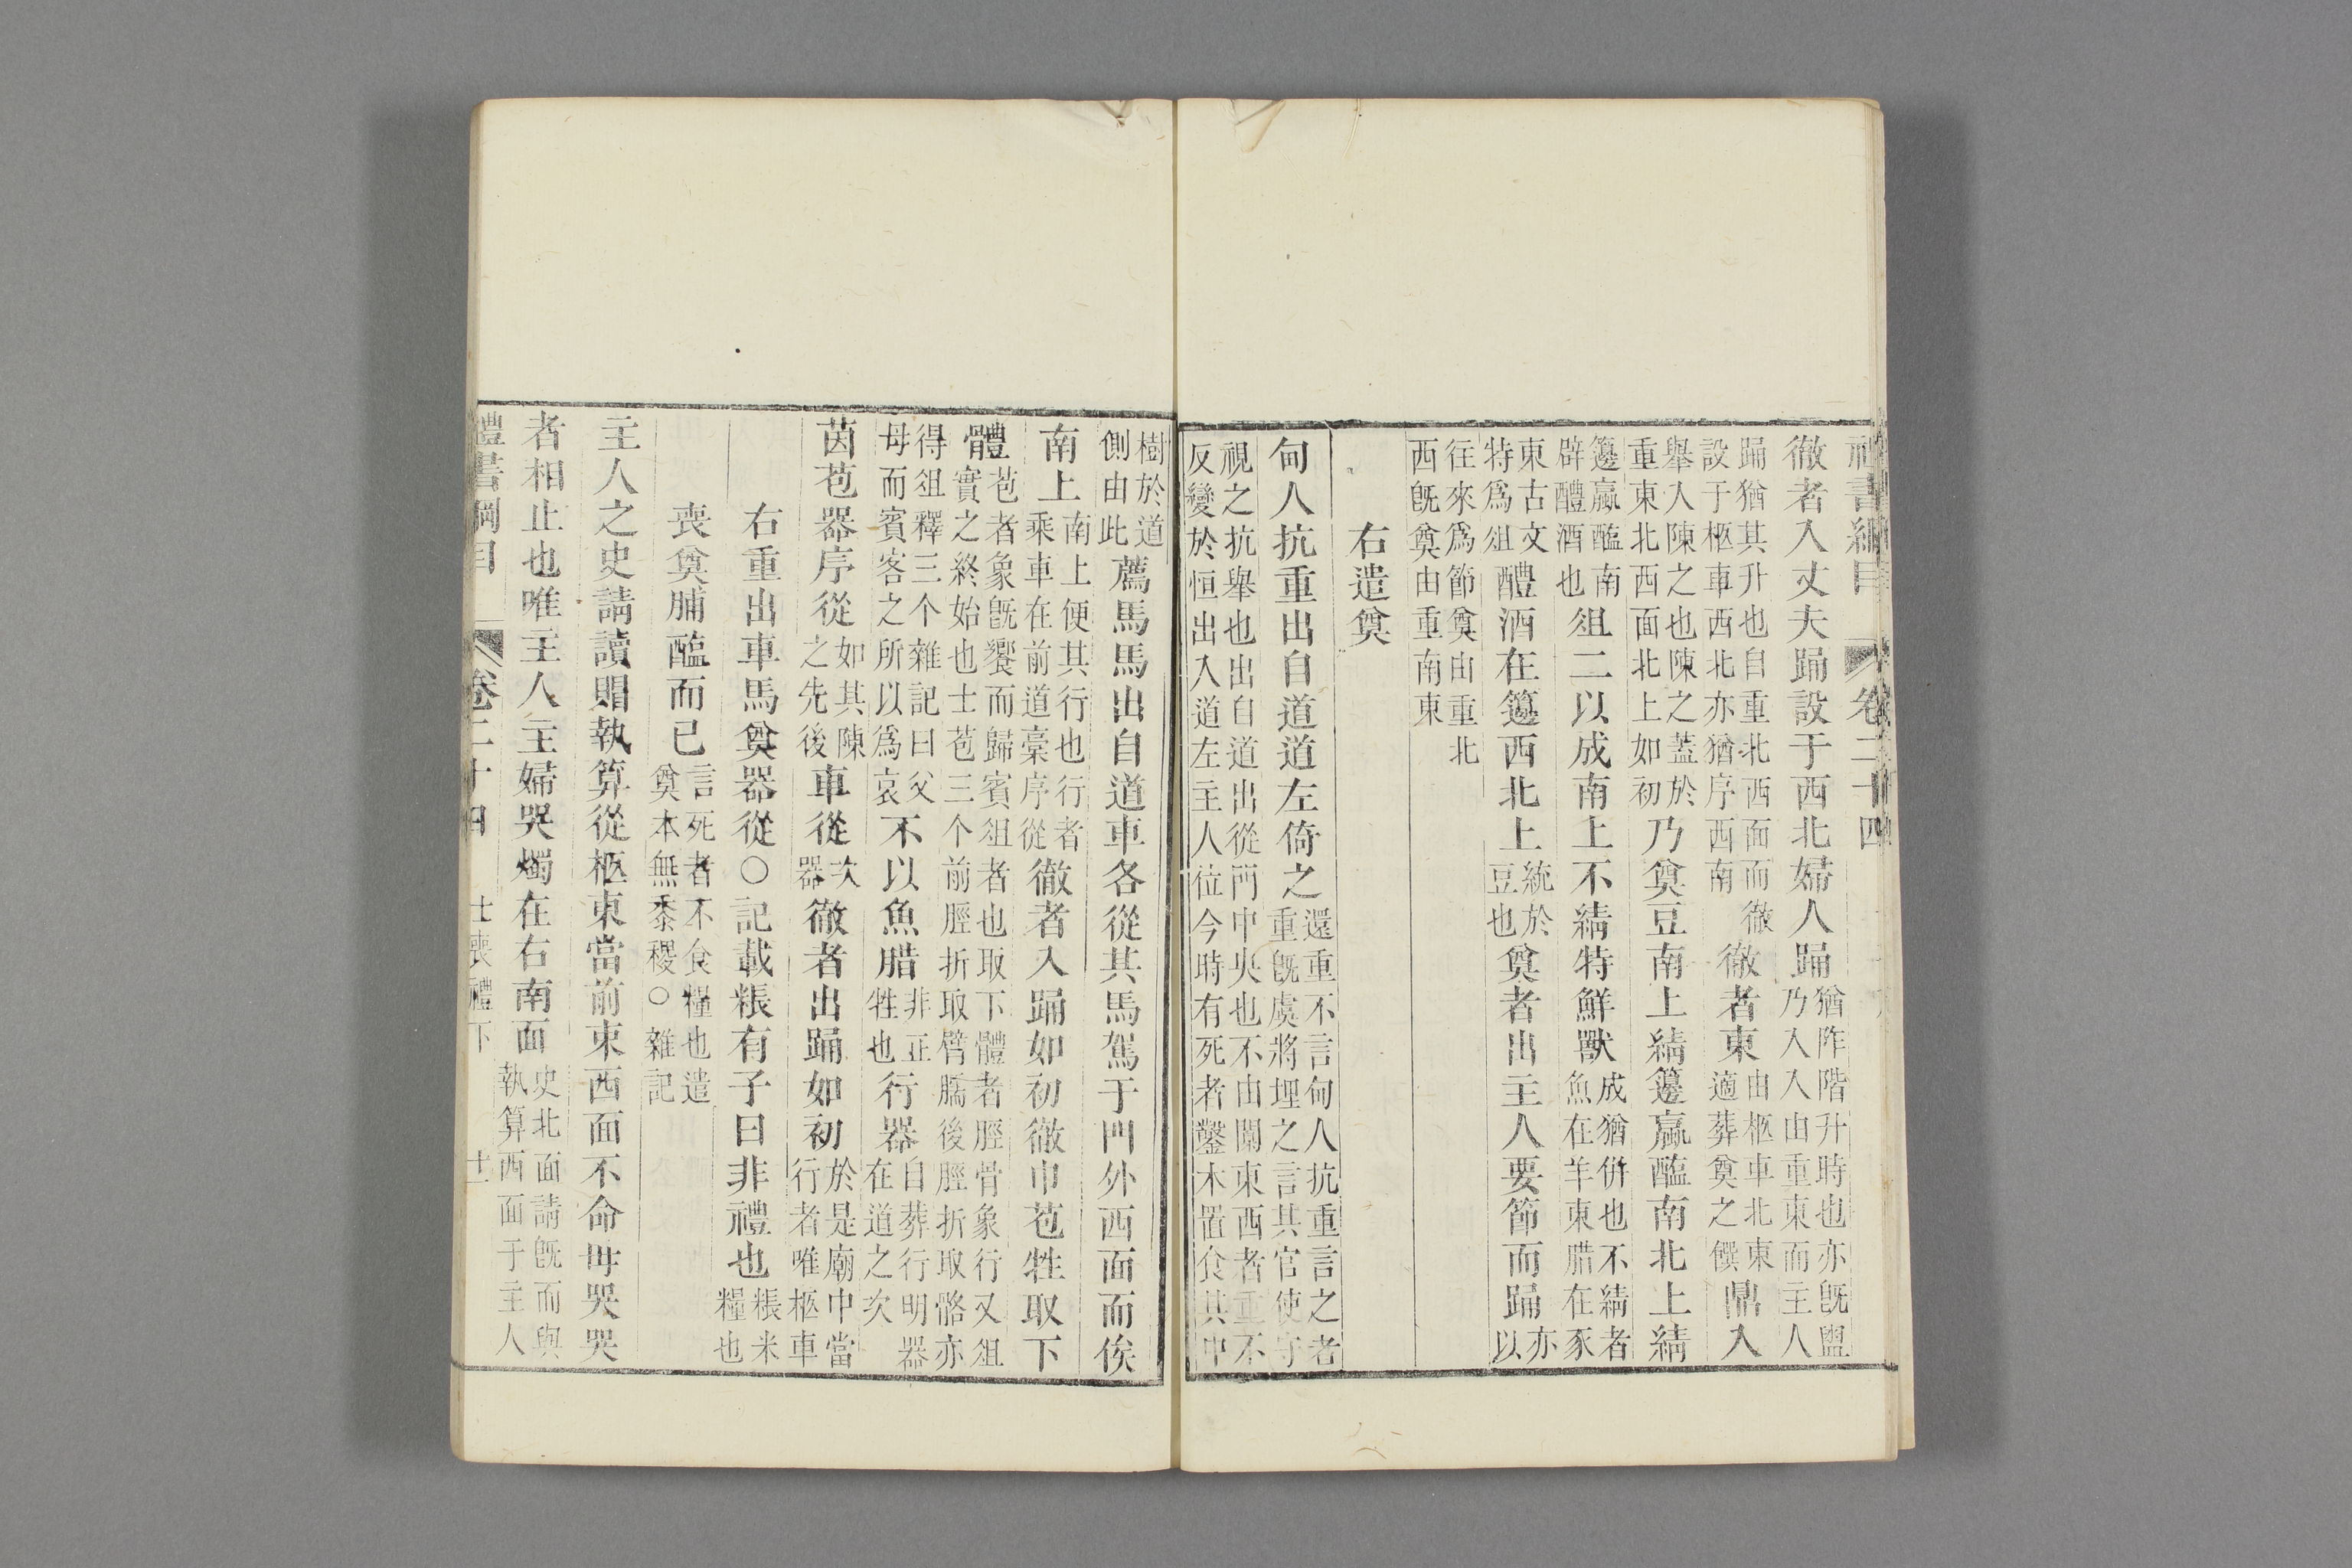 禮書綱目 卷二十四
徹者入丈夫踊設于西北婦人踊猶阼階升時也亦旣盥乃入入由重東而主人
踊猶其升也自重北西面而徹設于柩車西北亦猶序西南徹者東由柩車北東適葬奠之饌鼎入
舉入陳之也陳之蓋於重東北西面北上如初乃奠豆南上綪籩蠃醢南北上綪
籩蠃醢南辟醴酒也俎二以成南上不綪特鮮獸成猶併也不綪者魚在羊東腊在豕
東古文特爲俎醴酒在籩西北上統於豆也奠者出主人要節而踊亦以
往來爲節奠由重北西旣奠由重南東
右遣奠
甸人抗重出自道道左倚之還重不言甸人抗重言之者重旣虞將埋之言其官使守
視之抗舉也出自道出從門中央也不由闑東西者重不反變於恒出入道左主人位今時有死者鑿木置食其中
樹於道側由此薦馬馬出自道車各從其馬駕于門外西面而俟
南上南上便其行也行者乘車在前道槀序從徹者入踊如初徹巾苞牲取下
體苞者象旣饗而歸賓俎者也取下體者脛骨象行又俎實之終始也士苞三个前脛折取臂臑後脛折取骼亦
得俎釋三个雜記曰父母而賓客之所以爲哀不以魚腊非正牲也行器自葬行明器在道之次
茵苞器序從如其陳之先後車從次器徹者出踊如初於是廟中當行者唯柩車
右重出車馬奠器從○記載粻有子曰非禮也粻米糧也
喪奠脯醢而已言死者不食糧也遣奠本無黍稷○雜記
主人之史請讀賵執算從柩東當前東西面不命毋哭哭
者相止也唯主人主婦哭燭在右南面史北面請旣而與執算西面于主人
禮書綱目 卷二十四 士喪禮下 士